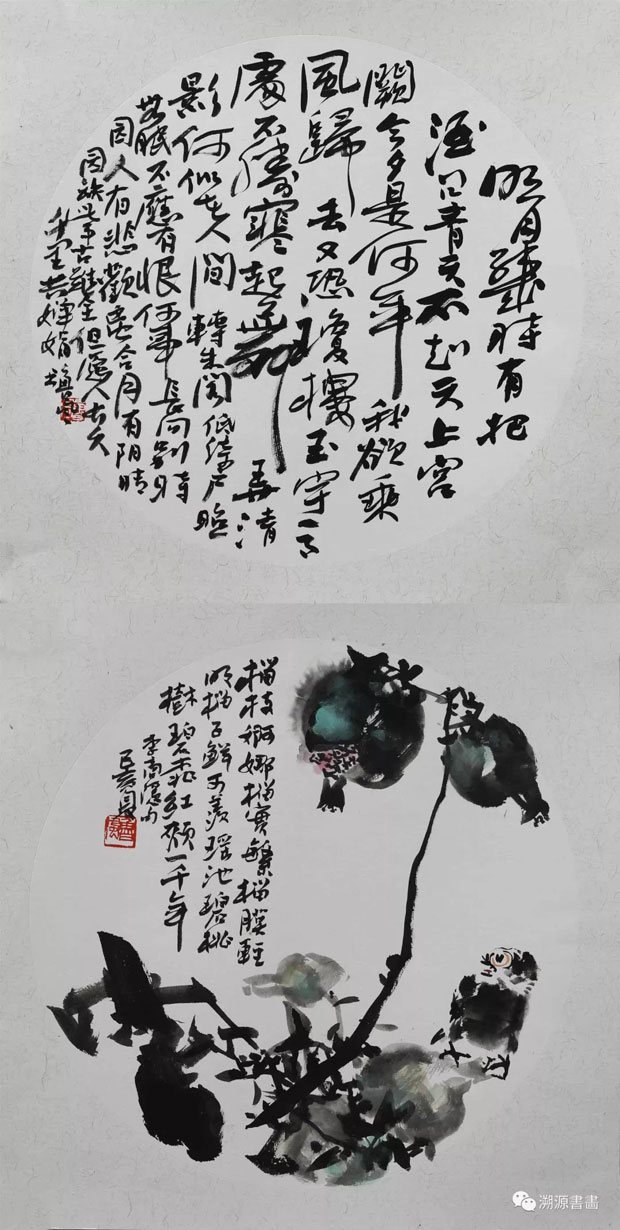 明月幾時有把
酒问青天不知天上宫
闕今夕是何年我欲乘
風歸去又恐瓊樓玉宇高
處不勝寒起舞弄清
影何似在人間轉朱阁低綺户照
無眠不應有恨何事長向别時
圆人有悲歡离合月有阴晴
圆缺此事古難全但愿人長久
千里共嬋娟
榴枝婀娜榴實繁榴膜輕
明榴子鮮可羡瑶池碧桃
樹碧桃紅颊一千年
李商隐句
己亥
溯源書畫